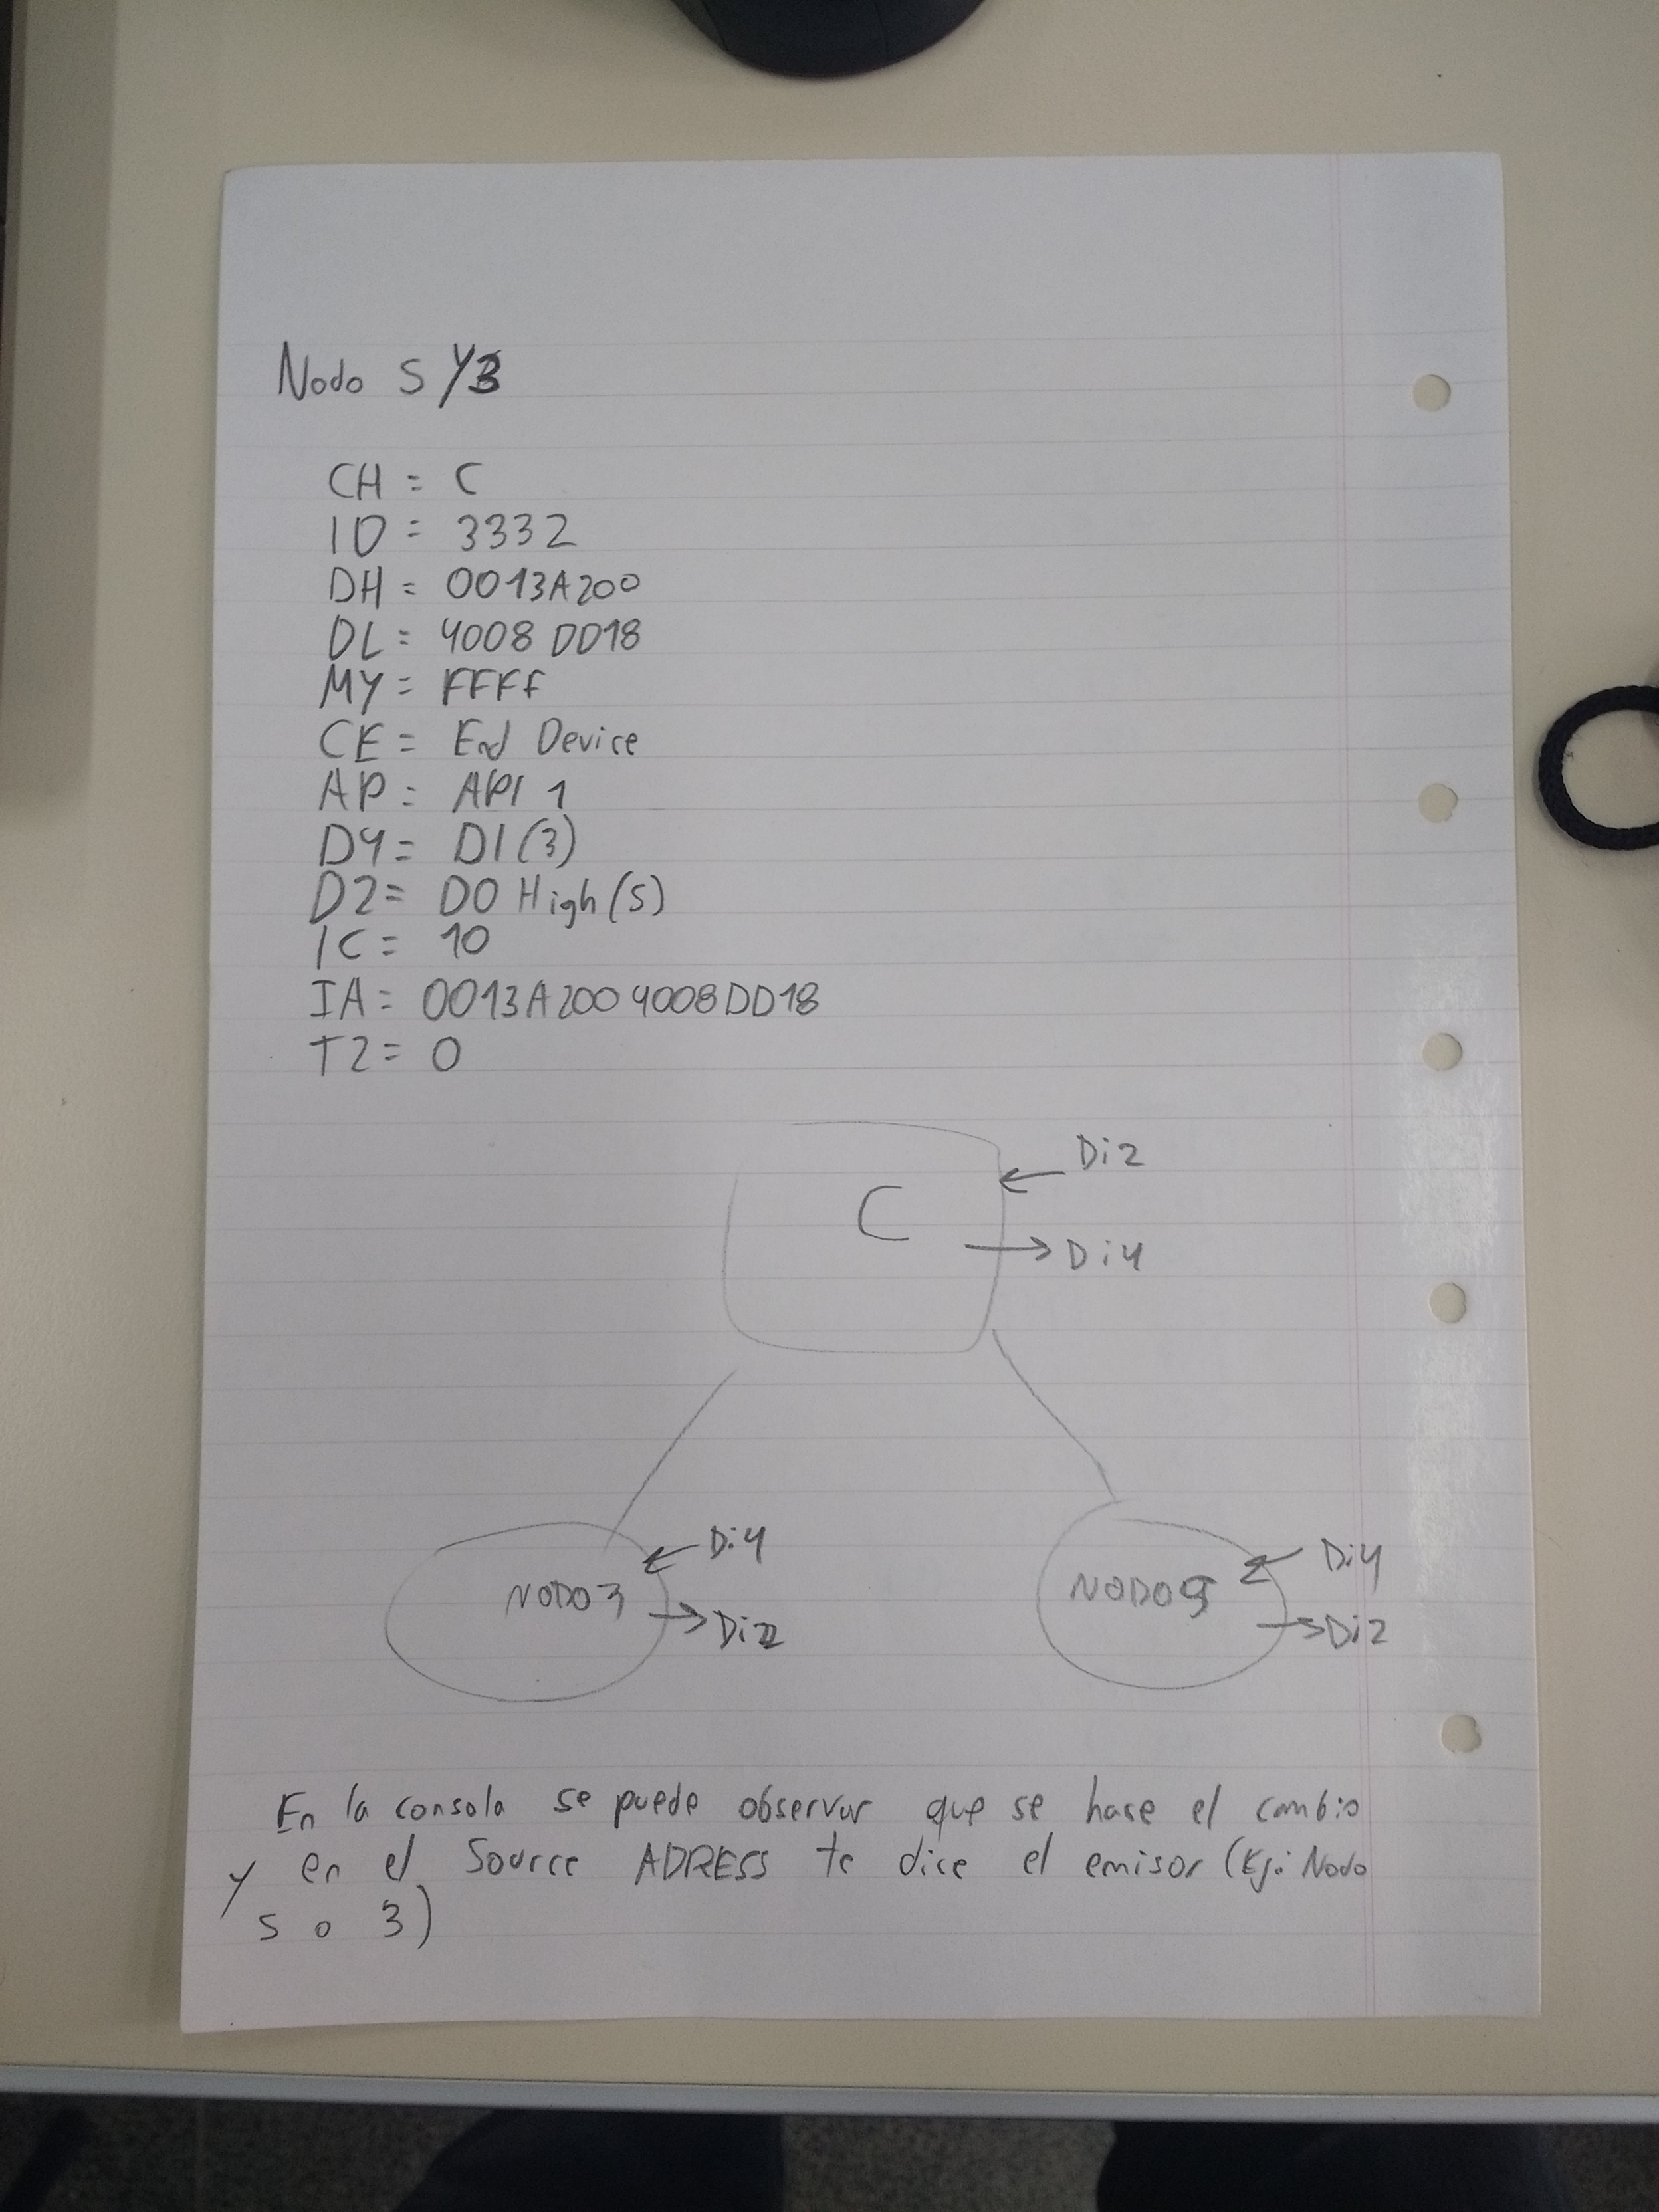 Nodo 5 y 3
CH = C
ID = 3332
DH = 0013A200
DL = 4008DD18
MY = FFFF
CE = End Device
AP = API 1
D4 = DI(3)
D2 = DO High(5)
IC = 10
IA = 0013A2004008DD18
T2 = 0
Di2
C
Di4
Di4
NODO3
Di2
Di4
NODO5
Di2
En la consola se puede observar que se hase el cambio
y en el Source ADRESS te dice el emisor (Ej: Nodo
5 o 3)